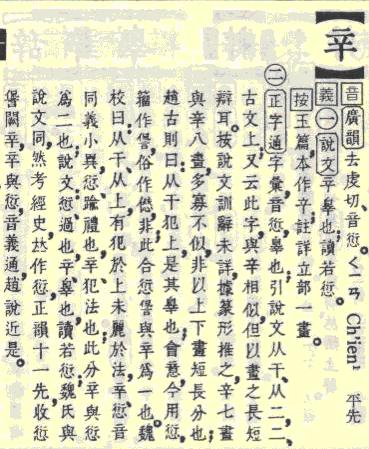 【䇂】
音 廣韻 去虔切、音愆。ㄑㄧㄢ Ch'ien¹ 平先
義 一 說文 䇂，辠也，讀若愆。
按玉篇本作䇂，註詳立部一畫。
二 正字通 字彙，音愆，辠也，引說文从干、从二、二、
古文上，又云此字與辛相似，但以畫之長短
辯耳。按說文訓辭未詳，據篆形推之，䇂七畫
與辛八畫，多寡不似，非以上下畫短長分也；
趙古則曰：从干犯上，是其辠也，會意，今用愆，
籀作諐，俗作𠍴，非，此合愆諐與䇂爲一也。魏
校曰：从干、从上，有犯於上，未麗於法，䇂愆音
同義小異，愆，踰禮也，䇂，犯法也，此分䇂與愆
爲二也；說文愆，過也，䇂，辠也，讀若愆，魏氏與
說文同，然考經史𠀤作愆，正韻十一先收愆
諐闕䇂，䇂與愆音義通，趙說近是。